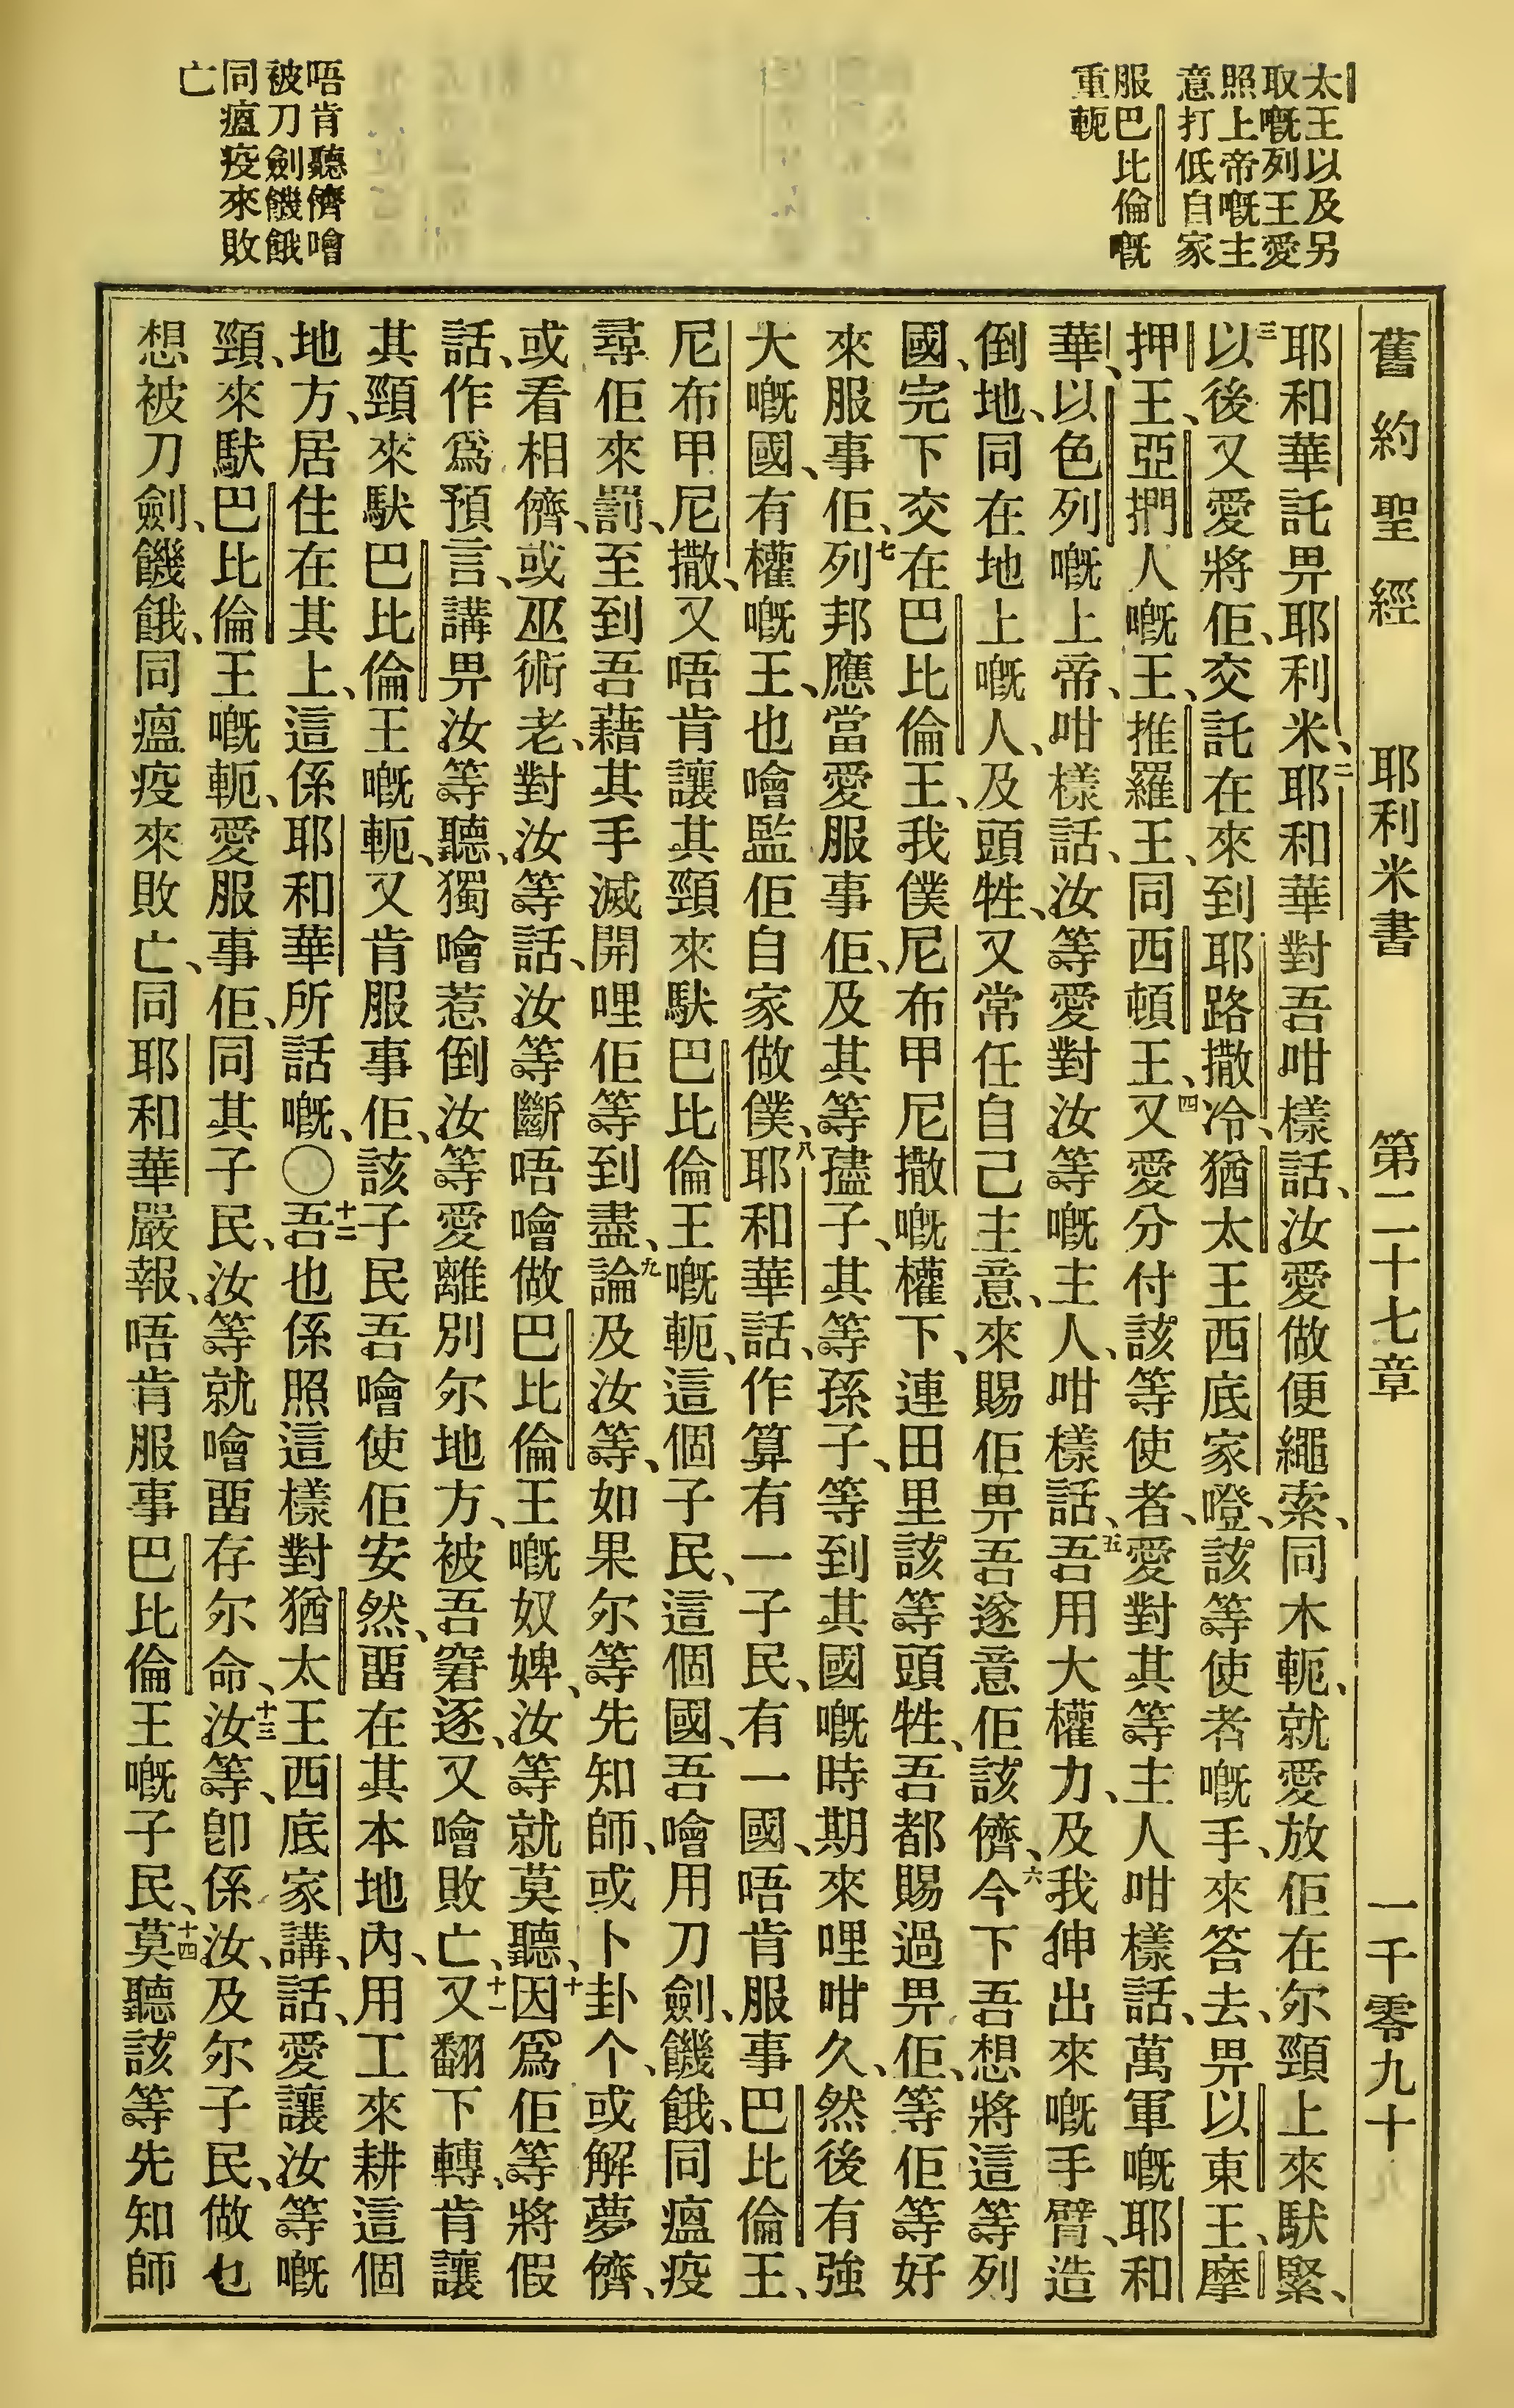 太王以及另
取嘅列王愛
照上帝嘅主
意打低自家
服巴比倫嘅
重軛
唔肯聽儕噲
被刀劍饑餓
同瘟疫來敗
亡
舊約聖經 耶利米書 第二十七章 一千零九十
耶和華託畀耶利米、二耶和華對吾咁樣話、汝愛做便繩索、同木軛、就愛放佢在尔頸上來馱緊、
三以後又愛將佢、交託在來到耶路撒冷、猶太王西底家噔、該等使者嘅手、來答去、畀以東王、摩
押王、亞捫人嘅王、推羅王、同西頓王、四又愛分付該等使者、愛對其等主人咁樣話、萬軍嘅耶和
華、以色列嘅上帝、咁樣話、汝等愛對汝等嘅主人、咁樣話、五吾用大權力、及我伸出來嘅手臂、造
倒地、同在地上嘅人、及頭牲、又常任自己主意、來賜佢畀吾遂意佢該儕、六今下吾想將這等列
國、完下交在巴比倫王、我僕尼布甲尼撒嘅權下、連田里該等頭牲、吾都賜過畀佢、等佢等好
來服事佢、七列邦應當愛服事佢、及其等孻子、其等孫子、等到其國嘅時期來哩咁久、然後有強
大嘅國、有權嘅王、也噲監佢自家做僕、八耶和華話、作算有一子民、有一國、唔肯服事巴比倫王、
尼布甲尼撒、又唔肯讓其頸來馱巴比倫王嘅軛、這個子民、這個國、吾噲用刀劍、饑餓、同瘟疫
尋佢來罰、至到吾藉其手滅開哩佢等到盡、九論及汝等、如果尔等先知師、或卜卦个、或解夢儕、
或看相儕、或巫術老、對汝等話、汝等斷唔噲做巴比倫王嘅奴婢、汝等就莫聽、十因爲佢等將假
話、作爲預言、講畀汝等聽、獨噲惹倒汝等愛離別尔地方、被吾窘逐、又噲敗亡、十一又翻下轉、肯讓
其頸來馱巴比倫王嘅軛、又肯服事佢、該子民吾噲使佢安然、畱在其本地內、用工來耕這個
地方、居住在其上、這係耶和華所話嘅、〇十二吾也係照這樣對猶太王西底家講、話、愛讓汝等嘅
頸、來馱巴比倫王嘅軛、愛服事佢、同其子民、汝等就噲畱存尔命、十三汝等、卽係汝、及尔子民、做乜
想被刀劍、饑餓、同瘟疫來敗亡、同耶和華嚴報、唔肯服事巴比倫王嘅子民、十四莫聽該等先知師